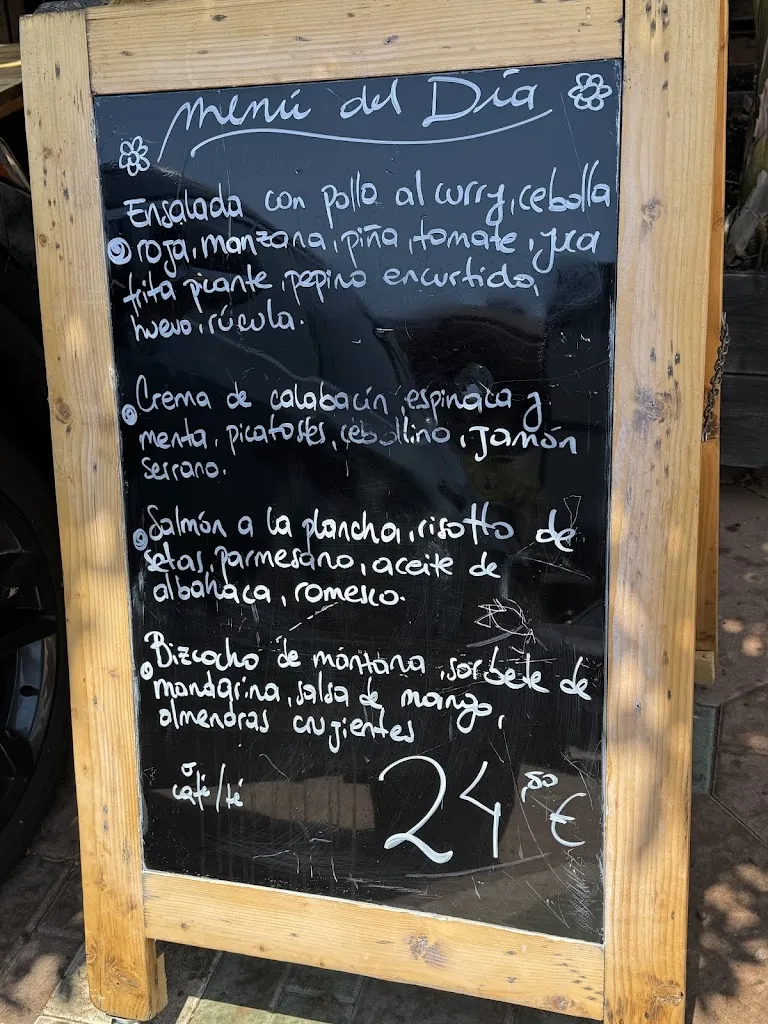 Menú del Día
Ensalada con pollo al curry, cebolla
roja, manzana, piña, tomate, yuca
frita picante, pepino encurtido,
huevo, rúcula.
Crema de calabacín, espinaca y
menta, picatostes, cebollino, Jamón
serrano.
Salmón a la plancha, risotto de
setas, parmesano, aceite de
albahaca, romesco.
Bizcocho de mantana, sorbete de
mandarina, salsa de mango,
almendras crujientes
o
café/té
24,50 €